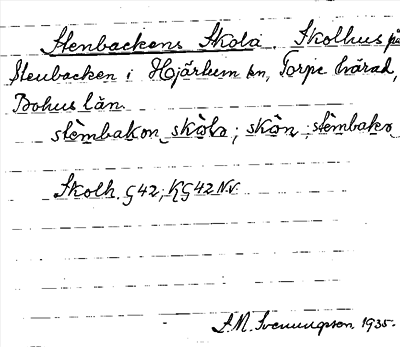 Stenbackens Skola. Skolhus på
Stenbacken i Hjärtum sn, Torpe härad,
Bohus län.
stèmbakən skòla; skòn; stèmbakən
Skolh. G42; KG42 N.V.
S.M. Svenungson 1935.